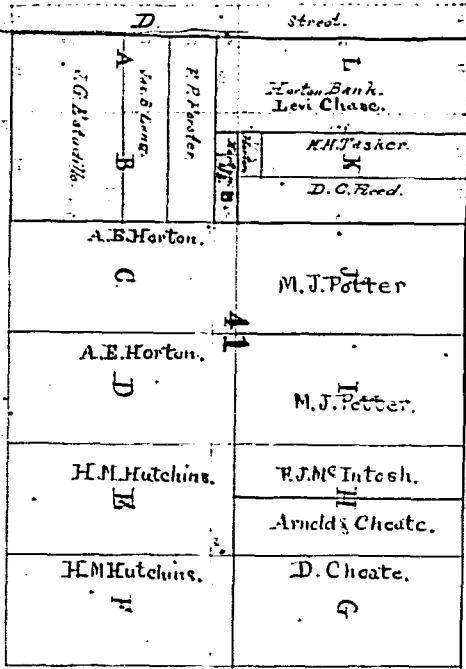 D. Street.
A
J. G. Estudillo.
Jas. B. Lang.
B
F. P. Forster.
L
Horton Bank.
Levi Chase.
Horton
K
D. C. Reed.
A. E. Horton.
C
J
M. J. Potter
41
A. E. Horton.
D
I
M. J. Potter.
H. M. Hutchins.
E
F. J. McIntosh.
H
Arnold & Choate.
H M Hutchins.
F
D. Choate.
G